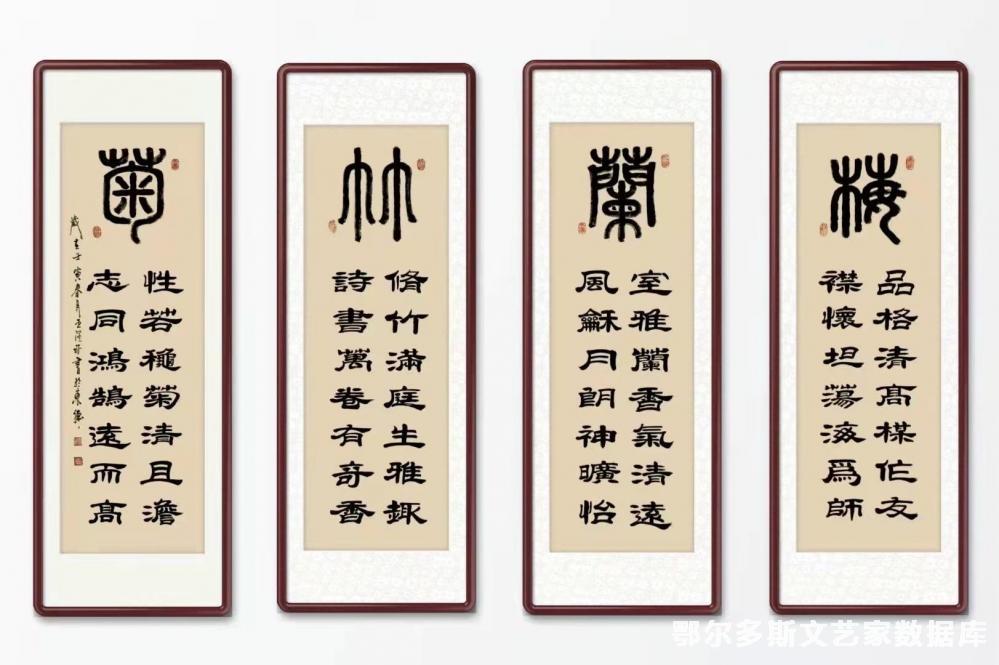 梅
品格清髙楳作友
襟懷坦蕩海爲師
蘭
室雅蘭香氣清遠
風龢月朗神曠怡
竹
脩竹滿庭生雅趣
詩書萬卷有奇香
菊
性若穐菊清且澹
志同鴻鵠遠而髙
歲在壬寅春月書於東勝
鄂尔多斯文艺家数据库